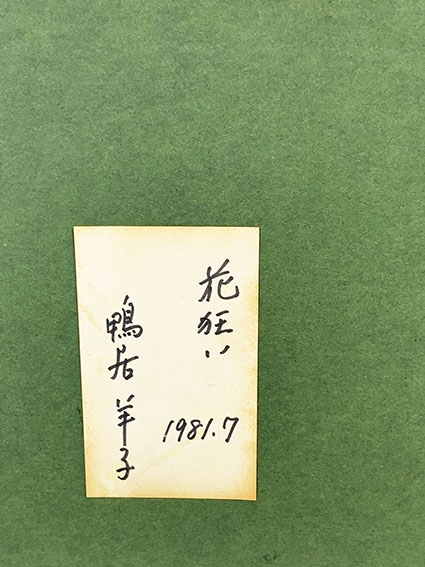 花狂い
1981.7
鴨居羊子